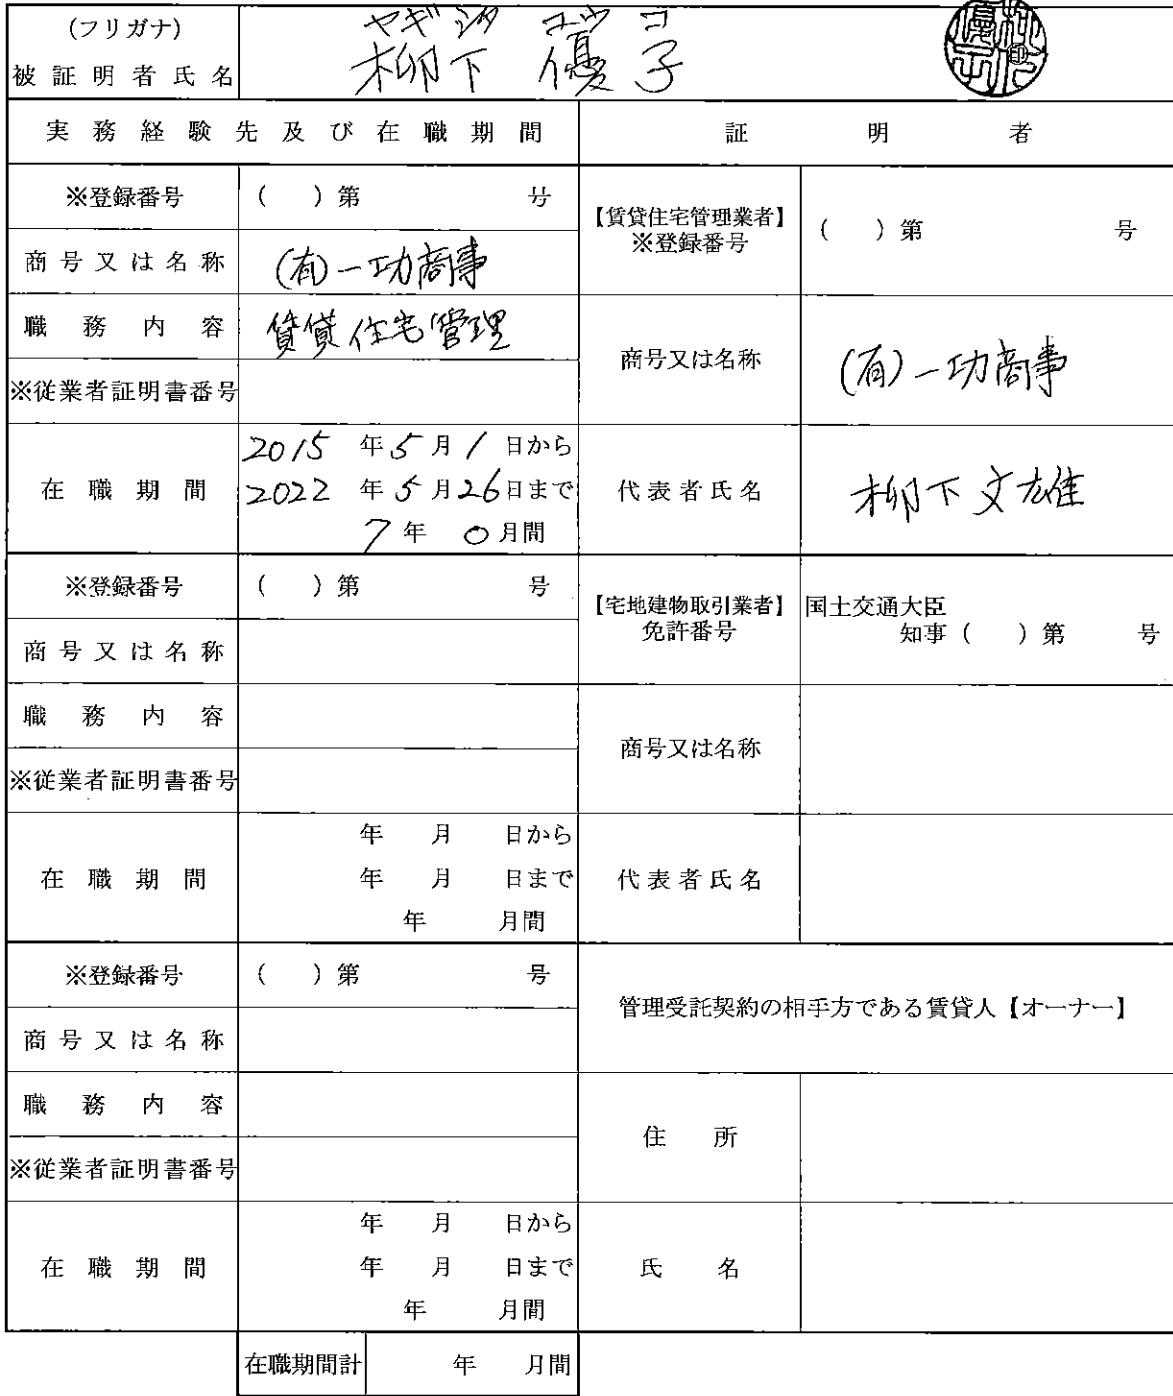 (フリガナ) ヤギシタ ユウコ
被証明者氏名 柳下 優子
実務経験先及び在職期間 証明者
※登録番号 ( )第 号
【賃貸住宅管理業者】
※登録番号 ( )第 号
商号又は名称 (有)一功商事
職務内容 賃貸住宅管理
商号又は名称 (有)一功商事
※従業者証明書番号
在職期間 2015年5月1日から
2022年5月26日まで
7年0月間
代表者氏名 柳下文雄
※登録番号 ( )第 号
【宅地建物取引業者】
免許番号
国土交通大臣
知事( )第 号
商号又は名称
職務内容
商号又は名称
※従業者証明書番号
在職期間 年 月 日から
年 月 日まで
年 月間
代表者氏名
※登録番号 ( )第 号
管理受託契約の相手方である賃貸人【オーナー】
商号又は名称
職務内容
住所
※従業者証明書番号
在職期間 年 月 日から
年 月 日まで
年 月間
氏名
在職期間計 年 月間